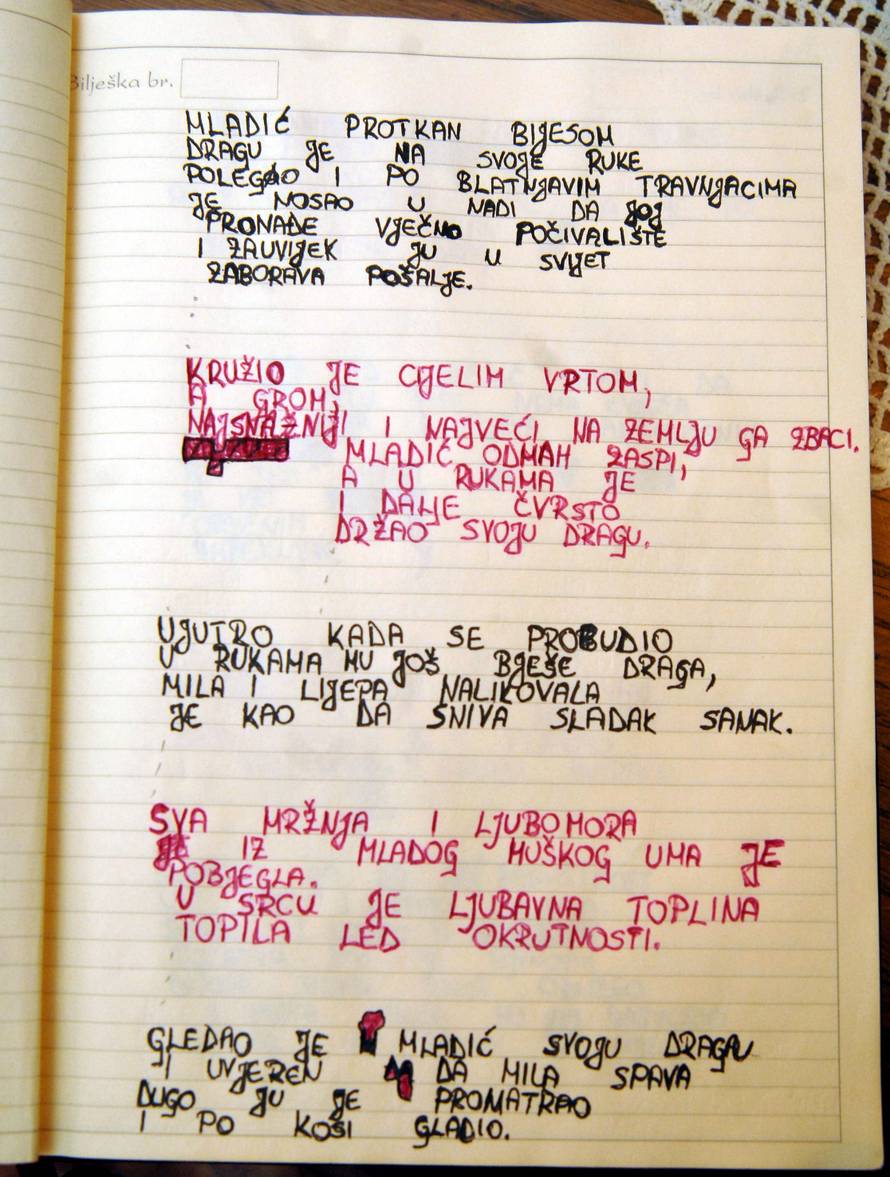 Bilješka br.
MLADIĆ PROTKAN BIJESOM
DRAGU JE NA SVOJE RUKE
POLEGAO I PO BLATNJAVIM TRAVNJACIMA
JE NOSAO U NADI DA JOJ
PRONAĐE VJEČNO POČIVALIŠTE
I ZAUVIJEK JU U SVIJET
ZABORAVA POŠALJE.
KRUŽIO JE CIJELIM VRTOM,
A GROM,
NAJSNAŽNIJI I NAJVEĆI NA ZEMLJU GA ZBACI.
MLADIĆ ODMAH ZASPI,
A U RUKAMA JE
I DALJE ČVRSTO
DRŽAO SVOJU DRAGU.
UJUTRO KADA SE PROBUDIO
U RUKAMA MU JOŠ BJEŠE DRAGA,
MILA I LIJEPA NALIKOVALA
JE KAO DA SNIVA SLADAK SANAK.
SVA MRŽNJA I LJUBOMORA
IZ MLADOG MUŠKOG UMA JE
POBJEGLA.
U SRCU JE LJUBAVNA TOPLINA
TOPILA LED OKRUTNOSTI.
GLEDAO JE MLADIĆ SVOJU DRAGU
I UVJEREN DA MILA SPAVA
DUGO JU JE PROMATRAO
I PO KOSI GLADIO.